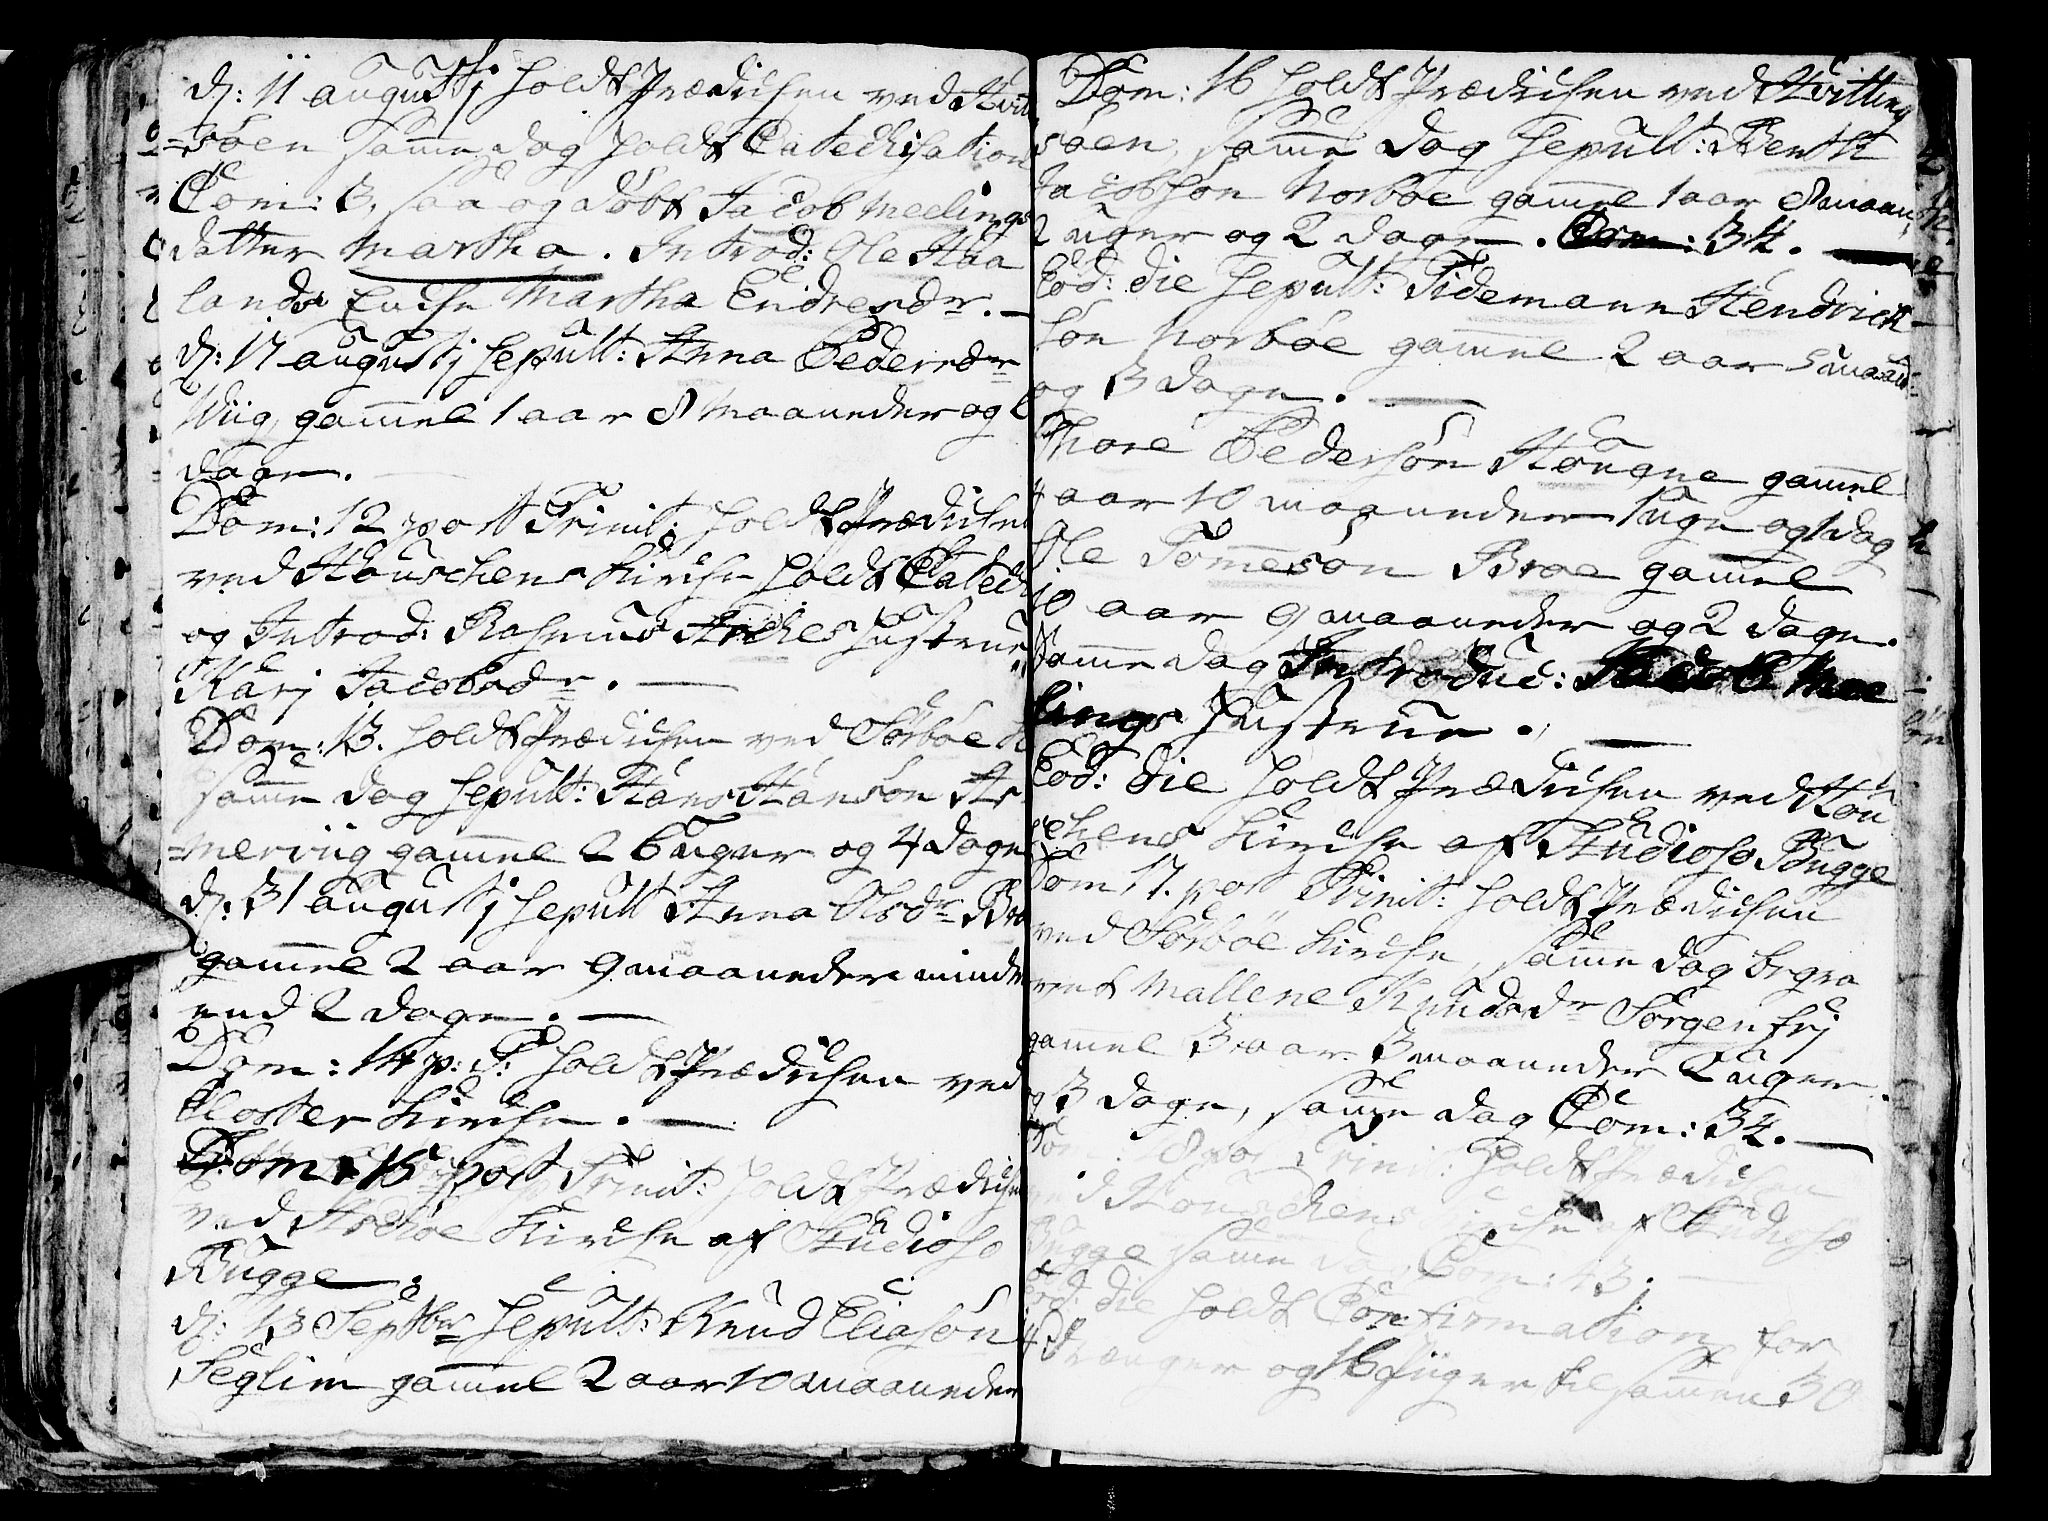 d: 11 augustj holdt Prædichen ved Hvit
=söen samme dag holdt Catechisation
Com: 3, saa og döbt Jacob Melings
datter Martha. Introd: Ole Haa
lands Enche Martha Endresdr. —
d: 17 augustj sepult: Anna Pedersdr
Wiig gamel 1 aar 8 Maaneder og
dage.
Dom: 12 post Trinit: holdt Prædichen
ved Houschens Kirche holdt Catech
og Introd: Rasmus Askes hustrue
Karj Jacobsdr. —
Dom: 13. holdt Prædichen ved Sörböe
samme dag sepult: Hans Hansön
merviig gamel 26 uger og 4 dage
d: 31 augustj sepult Anna Olsdr
gamel 2 aar 9 maaneder mindre
end 2 dage. —
Dom: 14 p: T: holdt Prædichen ved
Closter Kirche. —
Dom: 15 post Trinit: holdt Prædichen
ved Asköe Kirche af Studioso
Bugge.
d: 13 Septbr sepult: Knud Eliasön
Seglim gamel 2 aar 10 maaneder
Dom: 16 holdt Prædichen ved Hvitting
söen, samme dag sepult: Berthe
Jacobsön Norböe gamel 1 aar 8 maan
2 uger og 2 dage. Com: 34. —
Eod: die sepult: Tidemann Hendrich
sön Norböe gamel 2 aar 5 maan:
og 3 dage. —
Thore Pedersön Hougne gamel
4 aar 10 maaneder 1 uge og 1 dag
Ole Tomesön Broe gamel
10 aar 9 maaneder og 2 dage.
Samme dag Introduc: Jacob Me
lings hustrue. —
Eod: die holdt Prædichen ved Hou
schens Kirche af Studioso Bugge
Dom 17. post Trinit: holdt Prædichen
ved Sörböe Kirche, samme dag begra
vet Mallene Knudsdr Sörgenfrj
gamel 3 aar 3 maaneder 2 uger
og 3 dage, samme dag Com: 34. —
Dom 18 post Trinit: holdt Prædichen
ved Houschens Kirche af Studioso
Bugge samme dag Com: 43. —
Eod: die holdt Confirmation for
14 Drenger og 16 Piiger tilsammen 30